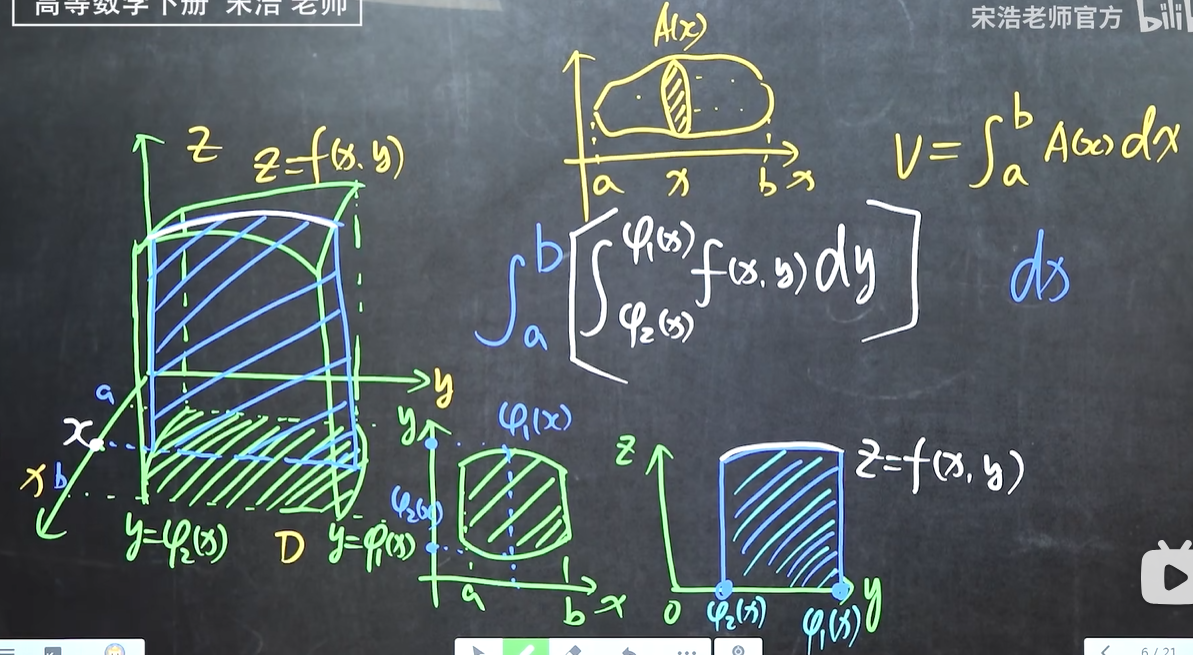 高等数学下册 宋浩 老师
宋浩老师官方 bili
A(x)
a x b x
V=∫_a^b A(x)dx
z
z=f(x,y)
∫_a^b [∫_{φ2(x)}^{φ1(x)} f(x,y)dy] dx
y
a
x
b
x
y=φ2(x) D y=φ1(x)
y
φ1(x)
φ2(x)
a b x
z
z=f(x,y)
0 φ2(x) φ1(x) y
6 / 21